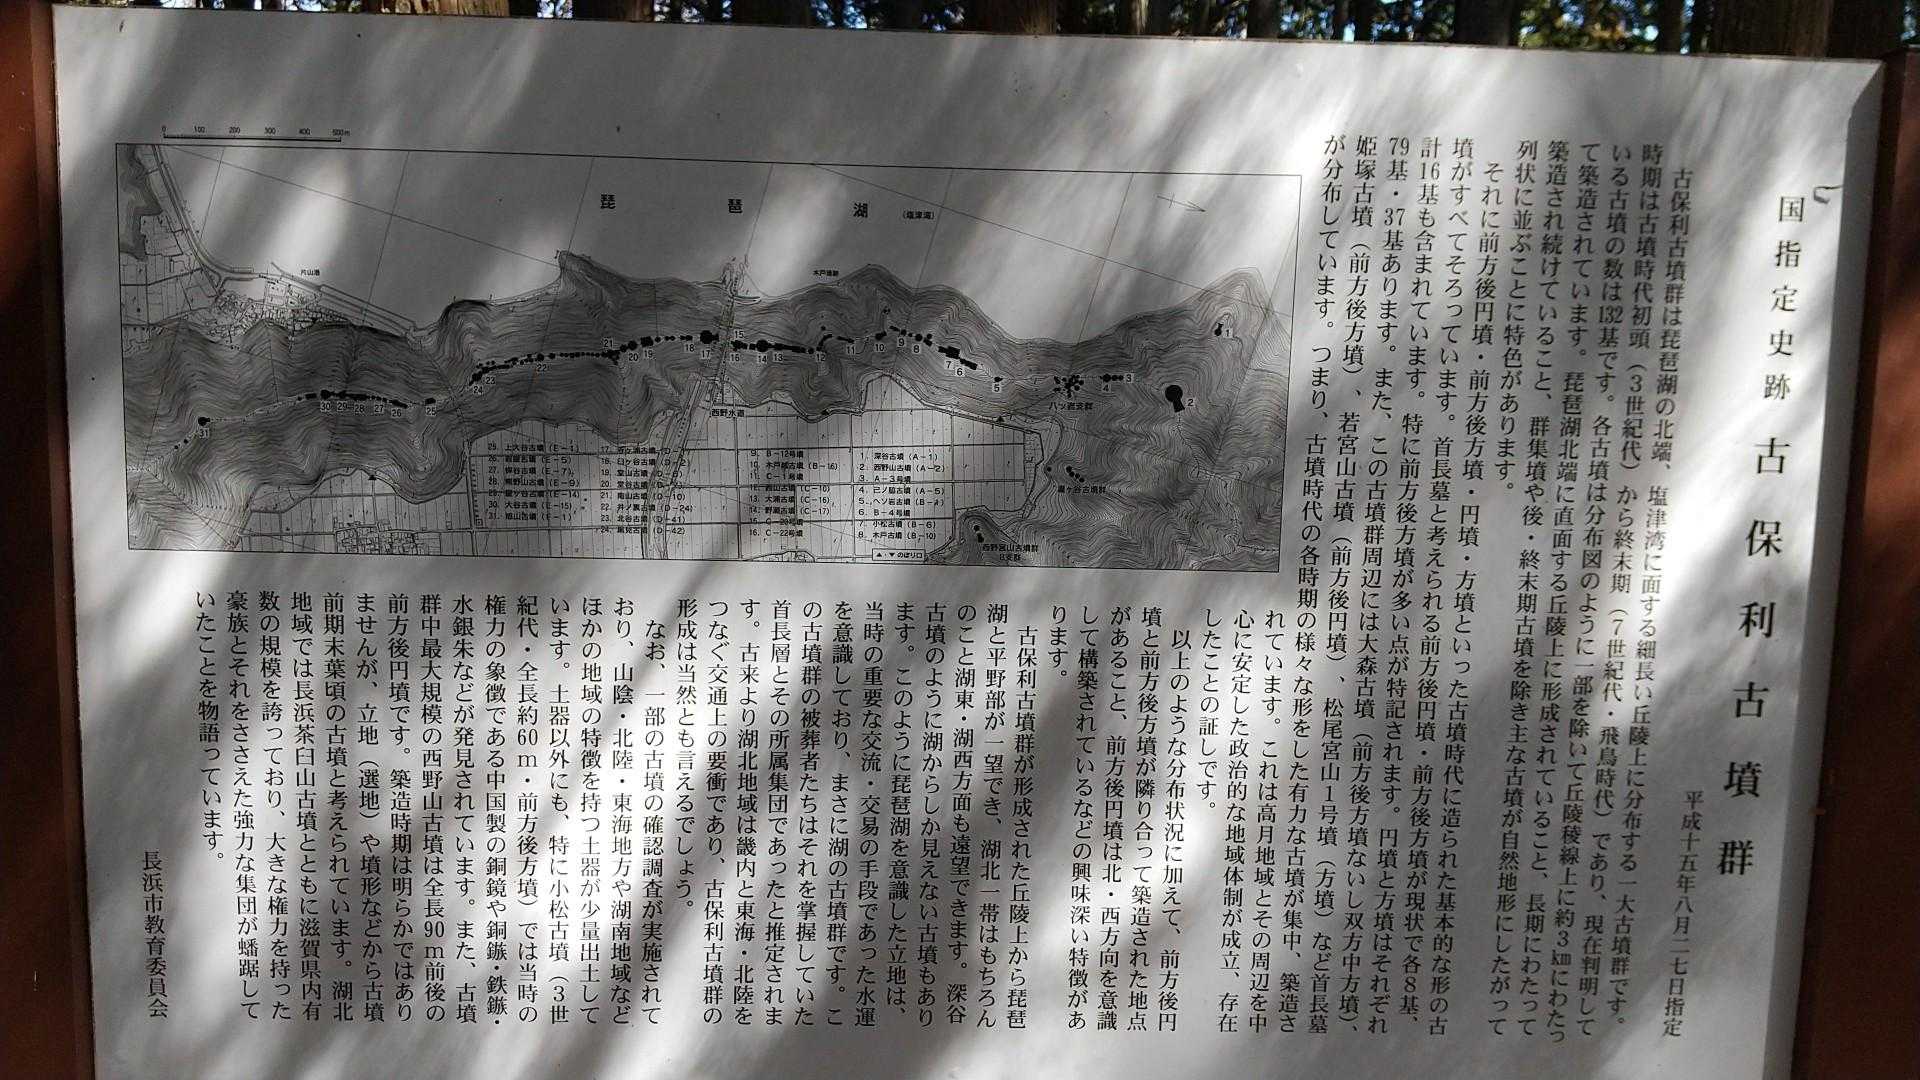 国指定史跡 古保利古墳群
平成十五年八月二七日指定
古保利古墳群は琵琶湖の北端、塩津湾に面する細長い丘陵上に分布する一大古墳群です。
時期は古墳時代初頭(3世紀代)から終末期(7世紀代・飛鳥時代)であり、現在判明して
いる古墳の数は132基です。各古墳は分布図のように一部を除いて丘陵稜線上に約3㎞にわたっ
て築造されています。琵琶湖北端に直面する丘陵上に形成されていること、長期にわたって
築造され続けていること、群集墳や後・終末期古墳を除き主な古墳が自然地形にしたがって
列状に並ぶことに特色があります。
それに前方後円墳・前方後方墳・円墳・方墳といった古墳時代に造られた基本的な形の古
墳がすべてそろっています。首長墓と考えられる前方後円墳・前方後方墳が現状で各8基、
計16基も含まれています。特に前方後方墳が多い点が特記されます。円墳と方墳はそれぞれ
79基・37基あります。また、この古墳群周辺には大森古墳(前方後方墳ないし双方中方墳)、
姫塚古墳(前方後方墳)、若宮山古墳(前方後円墳)、松尾宮山1号墳(方墳)など首長墓
が分布しています。つまり、古墳時代の各時期の様々な形をした有力な古墳が集中、築造さ
れています。これは高月地域とその周辺を中
心に安定した政治的な地域体制が成立、存在
したことの証しです。
以上のような分布状況に加えて、前方後円
墳と前方後方墳が隣り合って築造された地点
があること、前方後円墳は北・西方向を意識
して構築されているなどの興味深い特徴があ
ります。
古保利古墳群が形成された丘陵上から琵琶
湖と平野部が一望でき、湖北一帯はもちろん
のこと湖東・湖西方面も遠望できます。深谷
古墳のように湖からしか見えない古墳もあり
ます。このように琵琶湖を意識した立地は、
当時の重要な交流・交易の手段であった水運
を意識しており、まさに湖の古墳群です。こ
の古墳群の被葬者たちはそれを掌握していた
首長層とその所属集団であったと推定されま
す。古来より湖北地域は畿内と東海・北陸を
つなぐ交通上の要衝であり、古保利古墳群の
形成は当然とも言えるでしょう。
なお、一部の古墳の確認調査が実施されて
おり、山陰・北陸・東海地方や湖南地域など
ほかの地域の特徴を持つ土器が少量出土して
います。土器以外にも、特に小松古墳(3世
紀代・全長約60m・前方後方墳)では当時の
権力の象徴である中国製の銅鏡や銅鏃・鉄鏃・
水銀朱などが発見されています。また、古墳
群中最大規模の西野山古墳は全長90m前後の
前方後円墳です。築造時期は明らかではあり
ませんが、立地(選地)や墳形などから古墳
前期末葉頃の古墳と考えられています。湖北
地域では長浜茶臼山古墳とともに滋賀県内有
数の規模を誇っており、大きな権力を持った
豪族とそれをささえた強力な集団が蟠踞して
いたことを物語っています。
長浜市教育委員会
0 100 200 300 400 500m
琵琶湖(塩津湾)
片山港
西野水道
八ツ岩支群
西野宮山古墳群
B支群
1. 深谷古墳(A-1)
2. 西野山古墳(A-2)
3. A-3号墳
6. B-4号墳
7. 小松古墳(B-6)
8. 木戸古墳(B-10)
9. B-12号墳
11. C-1号墳
13. 大浦古墳(C-16)
14. 野瀬古墳(C-17)
16. C-22号墳
21. 南山古墳(D-10)
23. 北谷古墳(D-41)
25. 上大谷古墳(E-1)
28. 熊野山古墳(E-9)
30. 大谷古墳(E-15)
▲・▼のぼり口